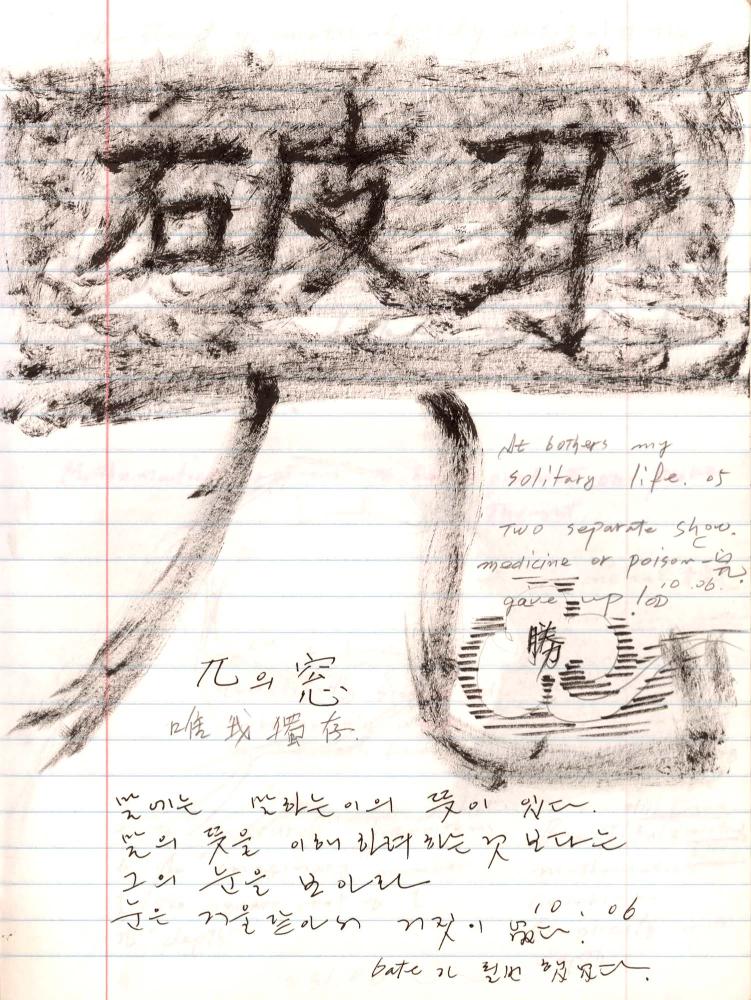 破耳
It bothers my
solitary life. 05
Two separate show.
medicine or poison
gave up! 10.06.
勝
π의 窓
唯我獨存.
말에는 말하는이의 뜻이 있다.
말의 뜻을 이해 하려 하는 것 보다는
그의 눈을 보아라
눈은 거울같아서 거짓이 없다. 10.06